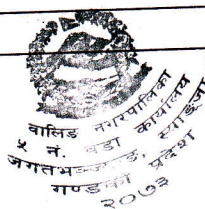 वालिङ नगरपालिका
५ नं. वडा कार्यालय
जगतभञ्ज्याङ, स्याङ्जा
गण्डकी प्रदेश
२०७३